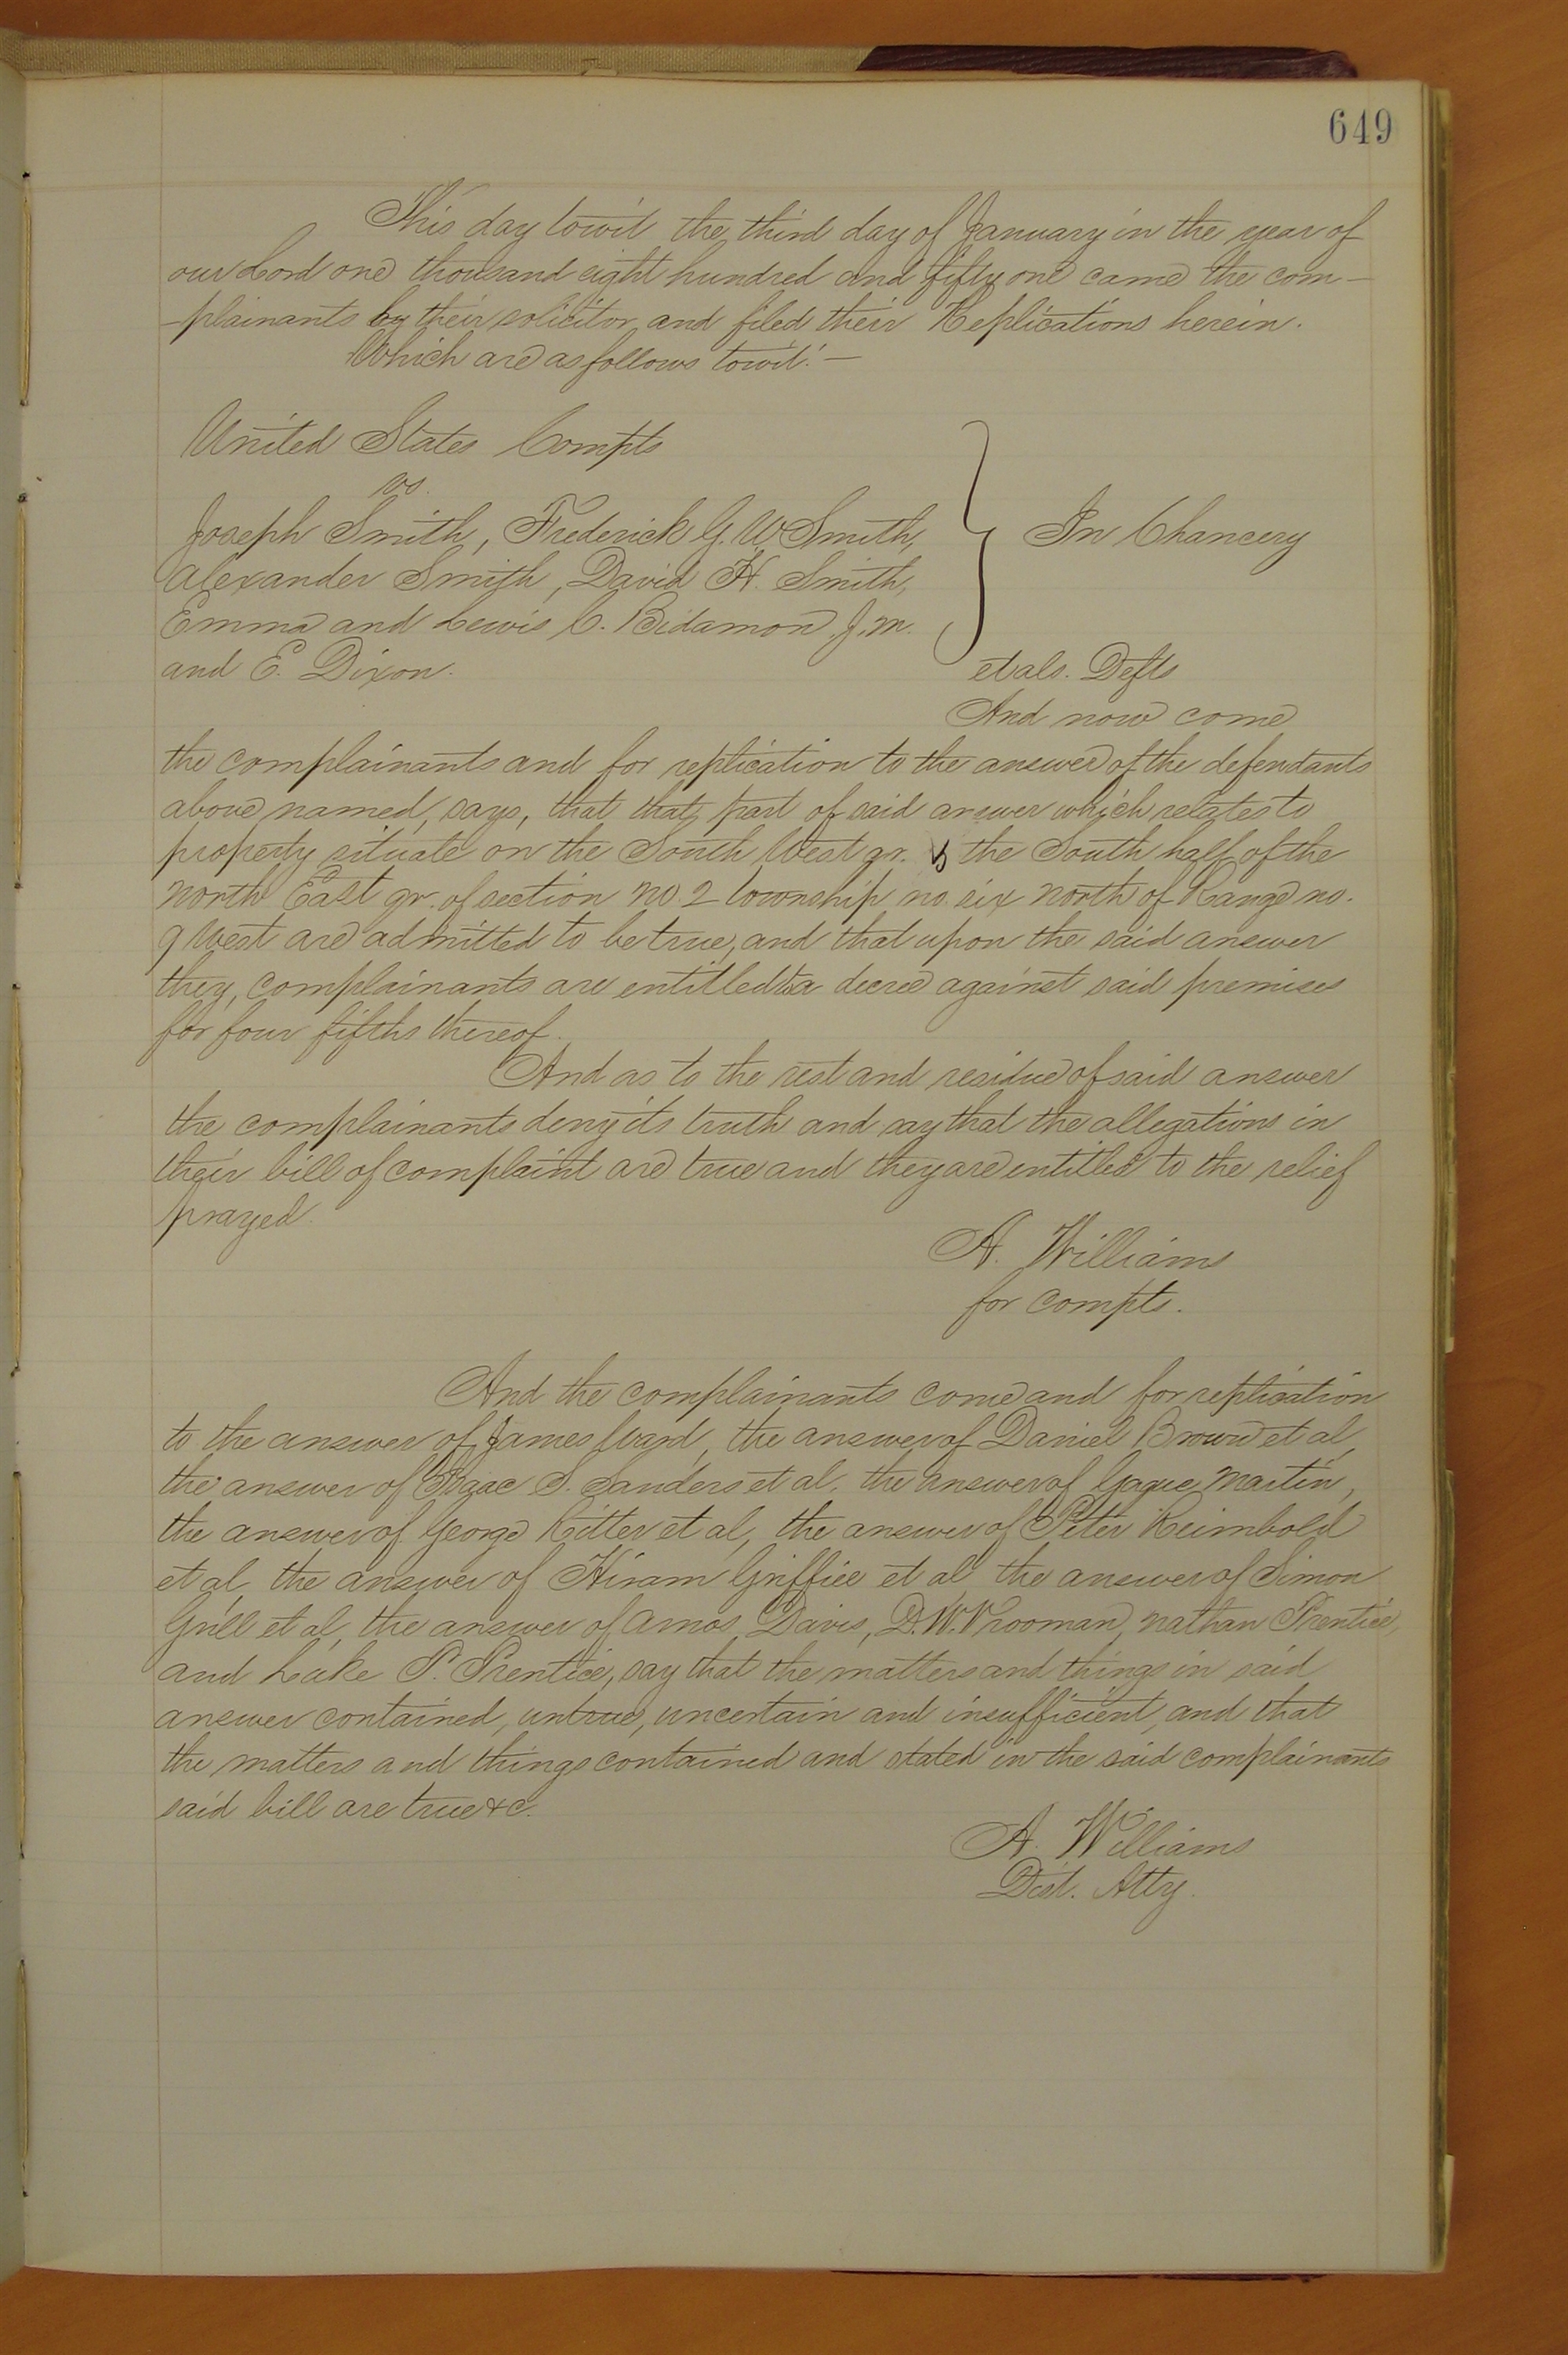 649
This day towit the third day of January in the year of
our Lord one thousand eight hundred and fifty one came the com-
-plainants by their solicitor and filed their Replications herein.
Which are as follows towit:-
United States Compts
vs.
Joseph Smith, Frederick G. W. Smith,
Alexander Smith, David H. Smith,
Emma and Lewis C. Bidamon, J. M.
and E. Dixon.
In Chancery
et als. Defts
And now come
the complainants and for replication to the answer of the defendants
above named, says, that that part of said answer which relates to
property situate on the South West qr. & the South half of the
North East qr. of section No. 2 township no. six north of Range no.
9 West are admitted to be true, and that upon the said answer
they, complainants are entitled to a decree against said premises
for four fifths thereof.
And as to the rest and residue of said answer
the complainants deny its truth and say that the allegations in
their bill of complaint are true and they are entitled to the relief
prayed.
A. Williams
for compts.
And the complainants come and for replication
to the answer of James Ward, the answer of Daniel Brown et al,
the answer of Isaac S. Sanders et al. the answer of Martin,
the answer of George Ritter et al, the answer of Peter Reimbold
et al, the answer of Hiram Griffiee et al the answer of Simon
Grill et al, the answer of Amos Davis, D. W. Vrooman, Nathan Prentice,
and Lake P. Prentice, say that the matters and things in said
answer contained, untrue, uncertain and insufficient, and that
the matters and things contained and stated in the said complainants
said bill are true &c.
A. Williams
Dist. Atty.